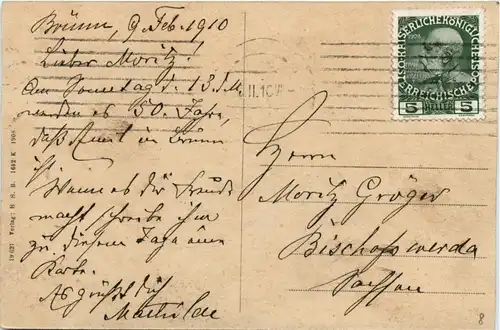 Brünn, 9 Feb. 1910
Lieber Moritz!
Am Sonntag d. 13. d. M.
werden es 50. Jahre,
daß in Brünn
ist
Wenn es dir Freude
macht schreibe ihm
zu diesem Tage eine
Karte.
Es grüßt dich
Mathilde
KAISERLICHE KÖNIGLICHE
ÖSTERREICHISCHE POST
5 HELLER 5
Herrn
Moritz Gröger
Bischofswerda
Sachsen
Verlag: H. S. B.
8